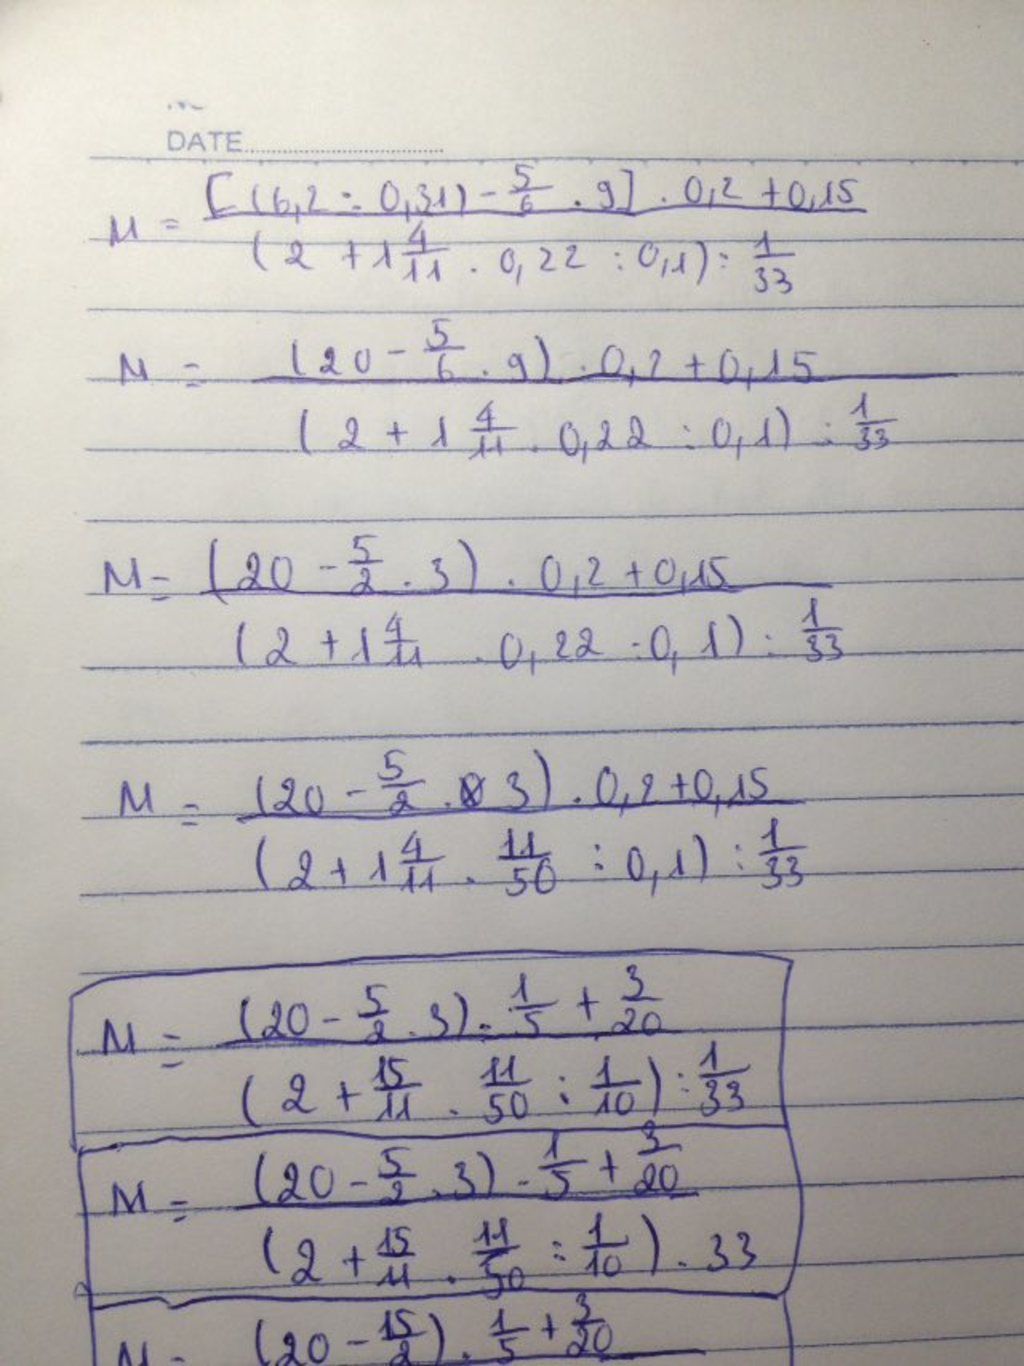 DATE
M = [(6,2 : 0,31) - 5/6 . 9] . 0,2 + 0,15
(2 + 1 4/11 . 0,22 : 0,1) : 1/33
M = (20 - 5/6 . 9) . 0,2 + 0,15
(2 + 1 4/11 . 0,22 : 0,1) : 1/33
M = (20 - 5/2 . 3) . 0,2 + 0,15
(2 + 1 4/11 . 0,22 : 0,1) : 1/33
M = (20 - 5/2 . 3) . 0,2 + 0,15
(2 + 1 4/11 . 11/50 : 0,1) : 1/33
M = (20 - 5/2 . 3) . 1/5 + 3/20
(2 + 15/11 . 11/50 : 1/10) : 1/33
M = (20 - 5/2 . 3) . 1/5 + 3/20
(2 + 15/11 . 11/50 : 1/10) . 33
M = (20 - 15/2) . 1/5 + 3/20